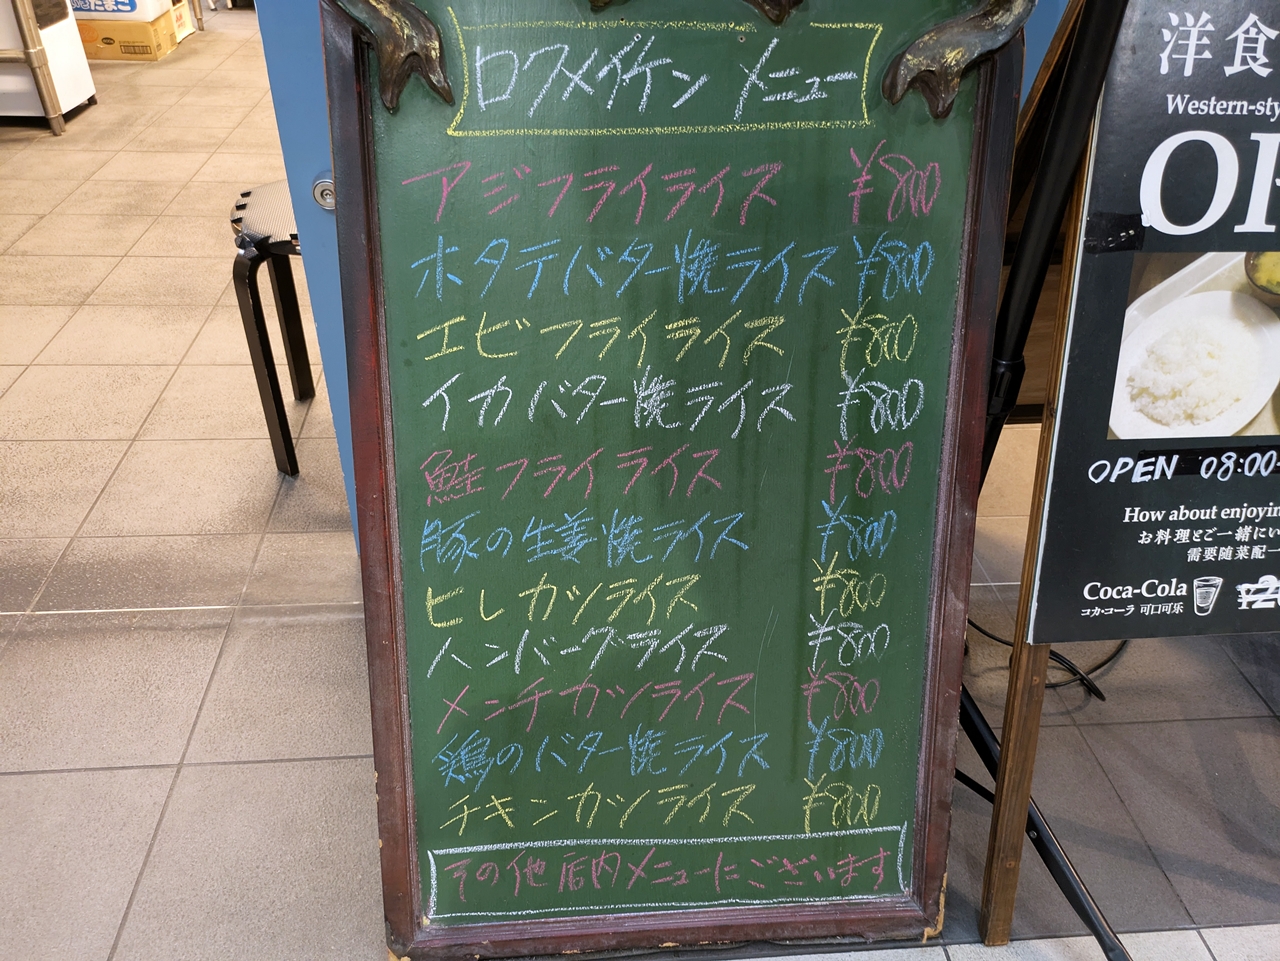 ロクメイケン メニュー
アジフライライス ¥800
ホタテバター焼ライス ¥800
エビフライライス ¥800
イカバター焼ライス ¥800
鮭フライライス ¥800
豚の生姜焼ライス ¥800
ヒレカツライス ¥800
ハンバーグライス ¥800
メンチカツライス ¥800
鶏のバター焼ライス ¥800
チキンカツライス ¥800
その他店内メニューにございます
洋食
Western-sty
OPEN 08:00-
How about enjoyin
お料理とご一緒にい
需要随菜配一
Coca-Cola
コカ·コーラ 可口可乐
たまご